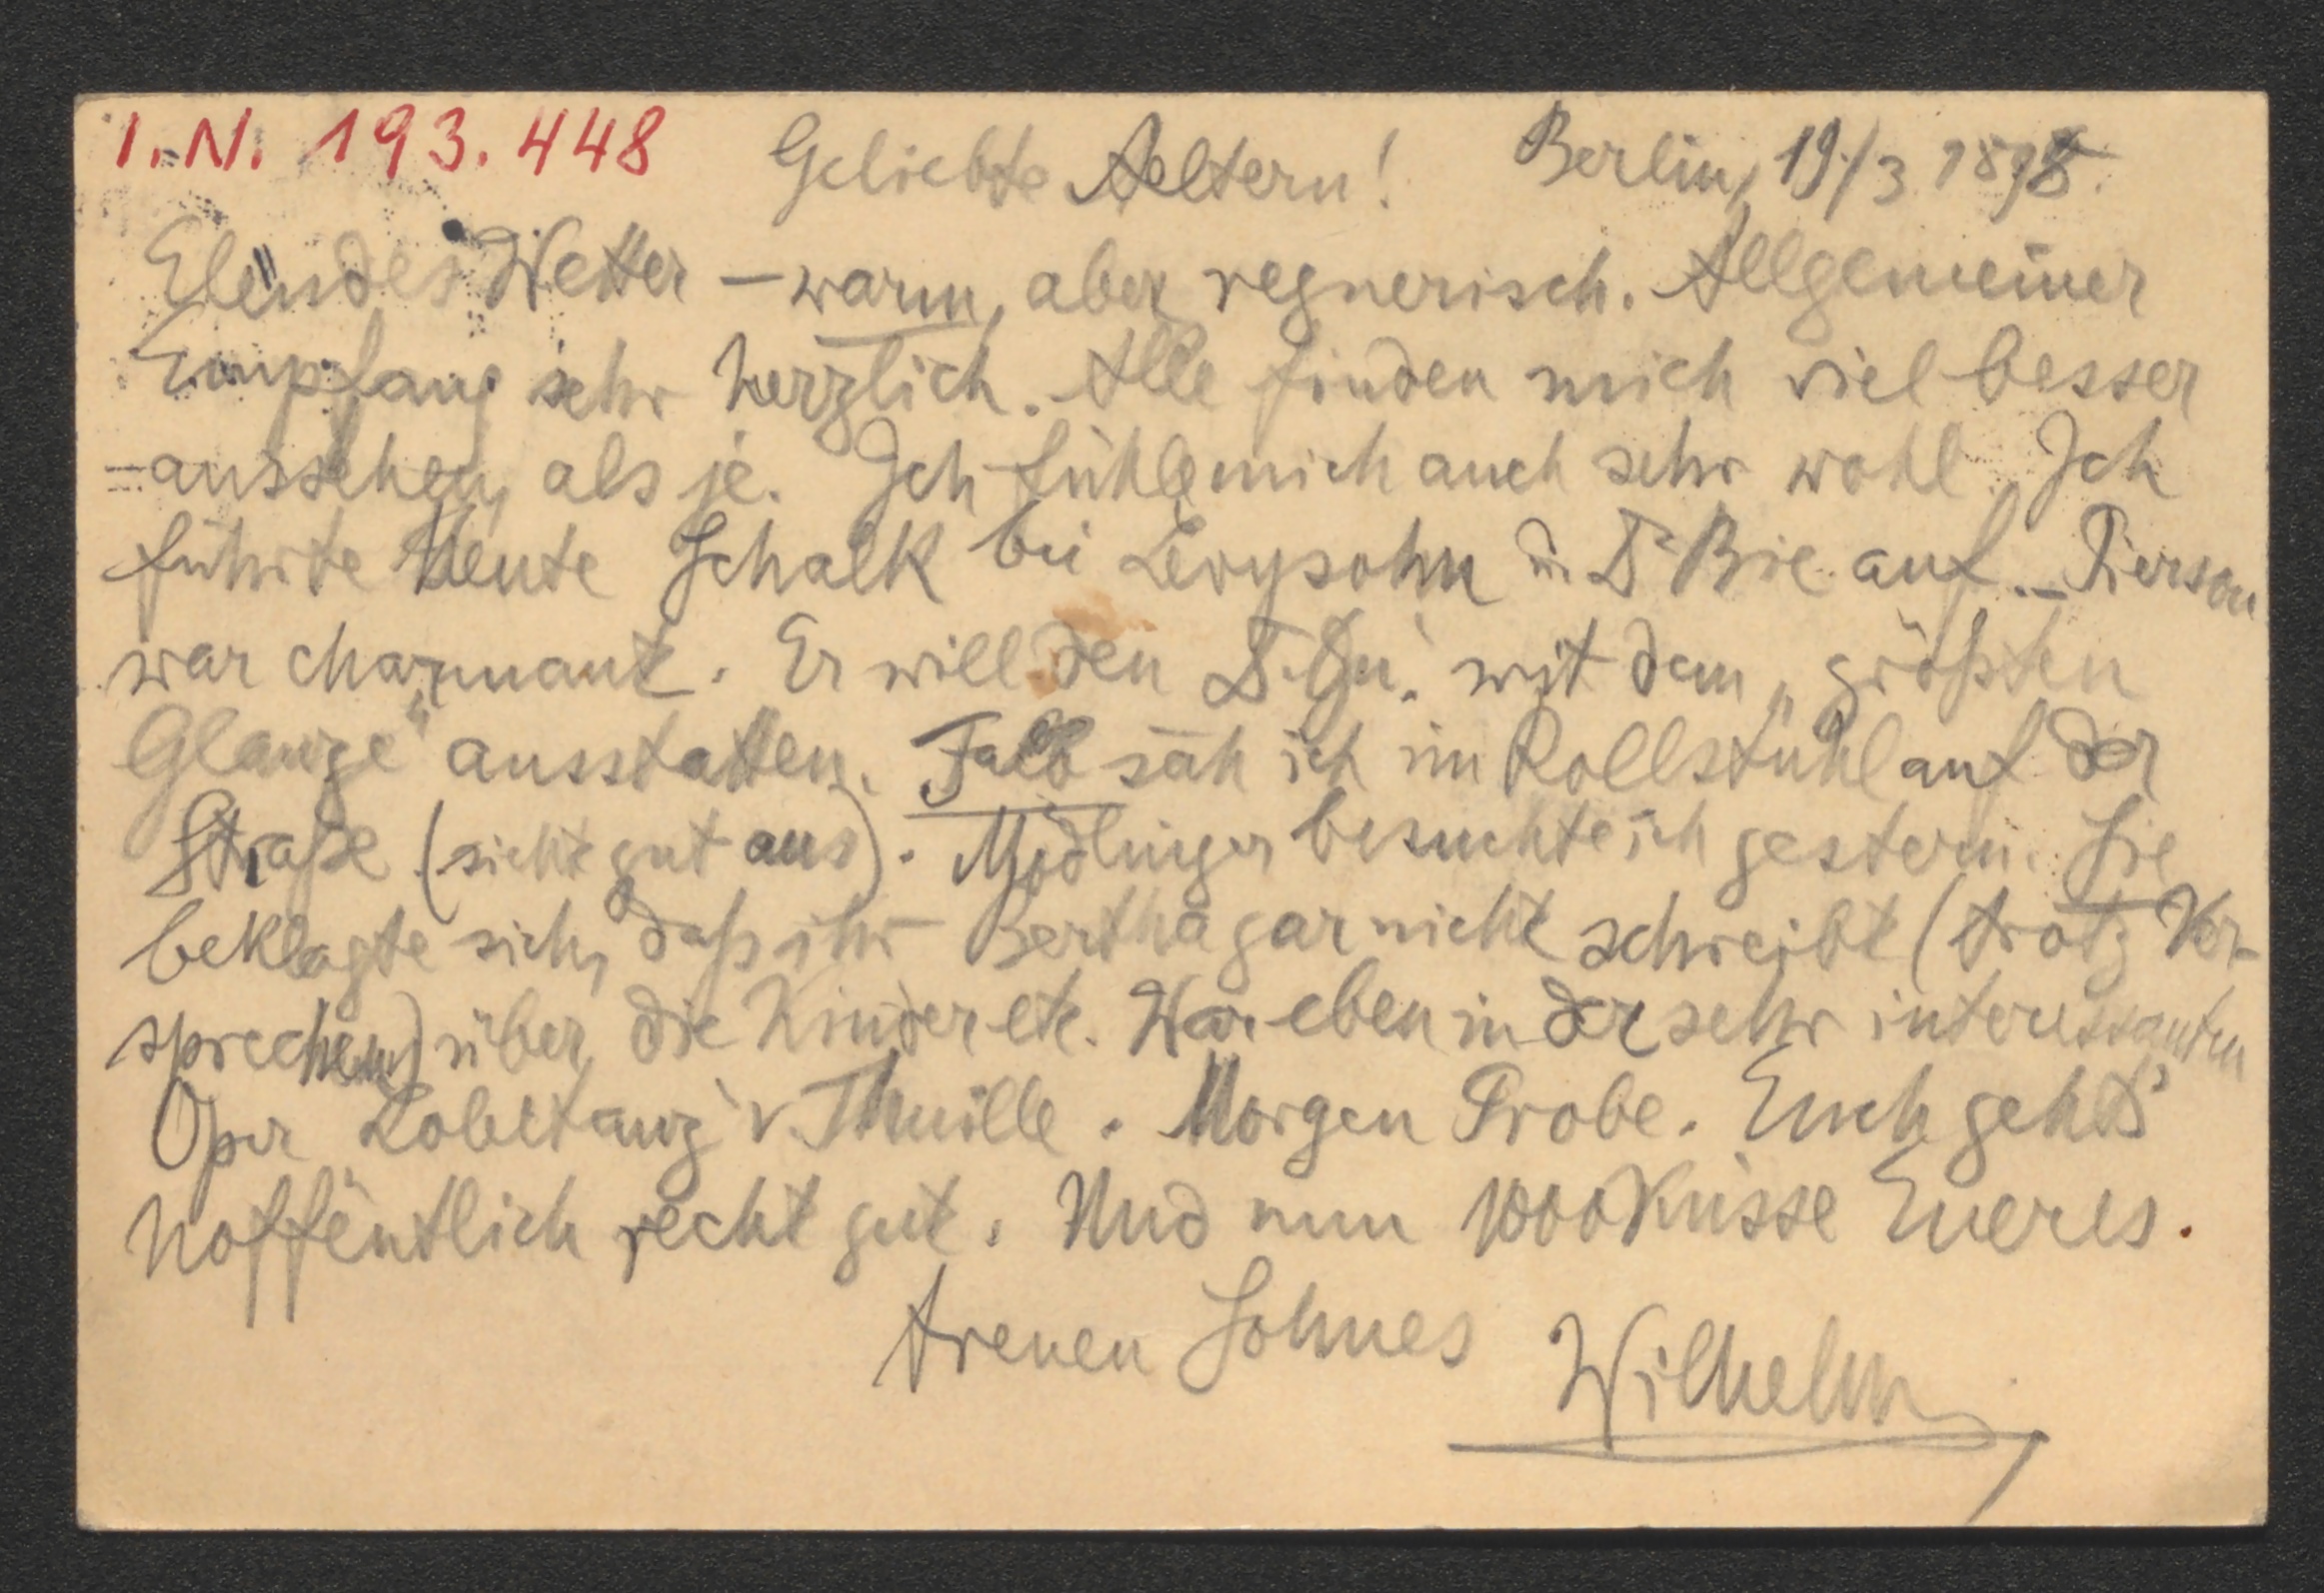 I.N. 193.448
Geliebte Aeltern! Berlin, 19/3 1898.
Elendes Wetter – warm, aber regnerisch. Allgemeiner
Empfang sehr herzlich. Alle finden mich viel besser
– aussehen, als je. Ich fühle mich auch sehr wohl. Ich
führte heute Schalk bei Levysohn u. Dr Bie auf. – Pierson
war charmant. Er will den mit dem „größten
Glanze“ ausstatten. Falb sah ich im Rollstuhl auf der
Straße (sieht gut aus). Mödlinger besuchte ich gestern. Sie
beklagte sich, daß ihr Bertha gar nicht schreibt (trotz Ver-
sprechen) über die Kinder etc. War eben in der sehr interessanten
Oper Lobetanz v. Thuille. Morgen Probe. Euch geht's
hoffentlich recht gut. Und nun 1000 Küsse Eueres
treuen Sohnes Wilhelm